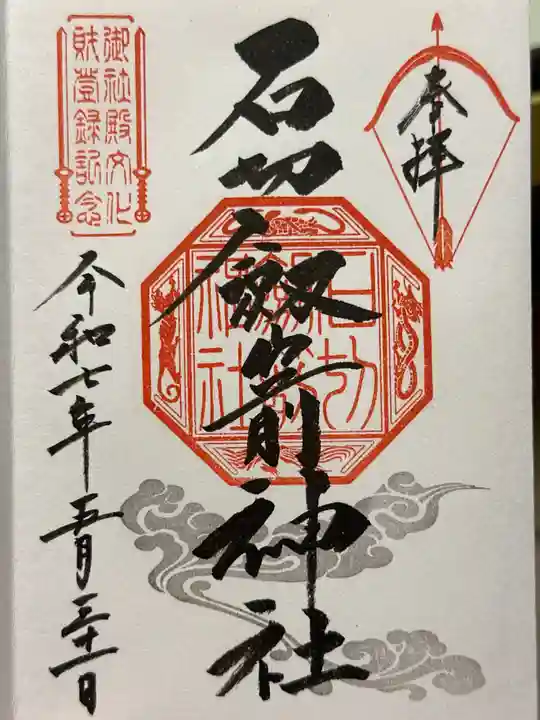 奉拝
石切劔箭神社
石切
劔箭
神社
御社殿文化
財登録記念
令和七年五月三十一日